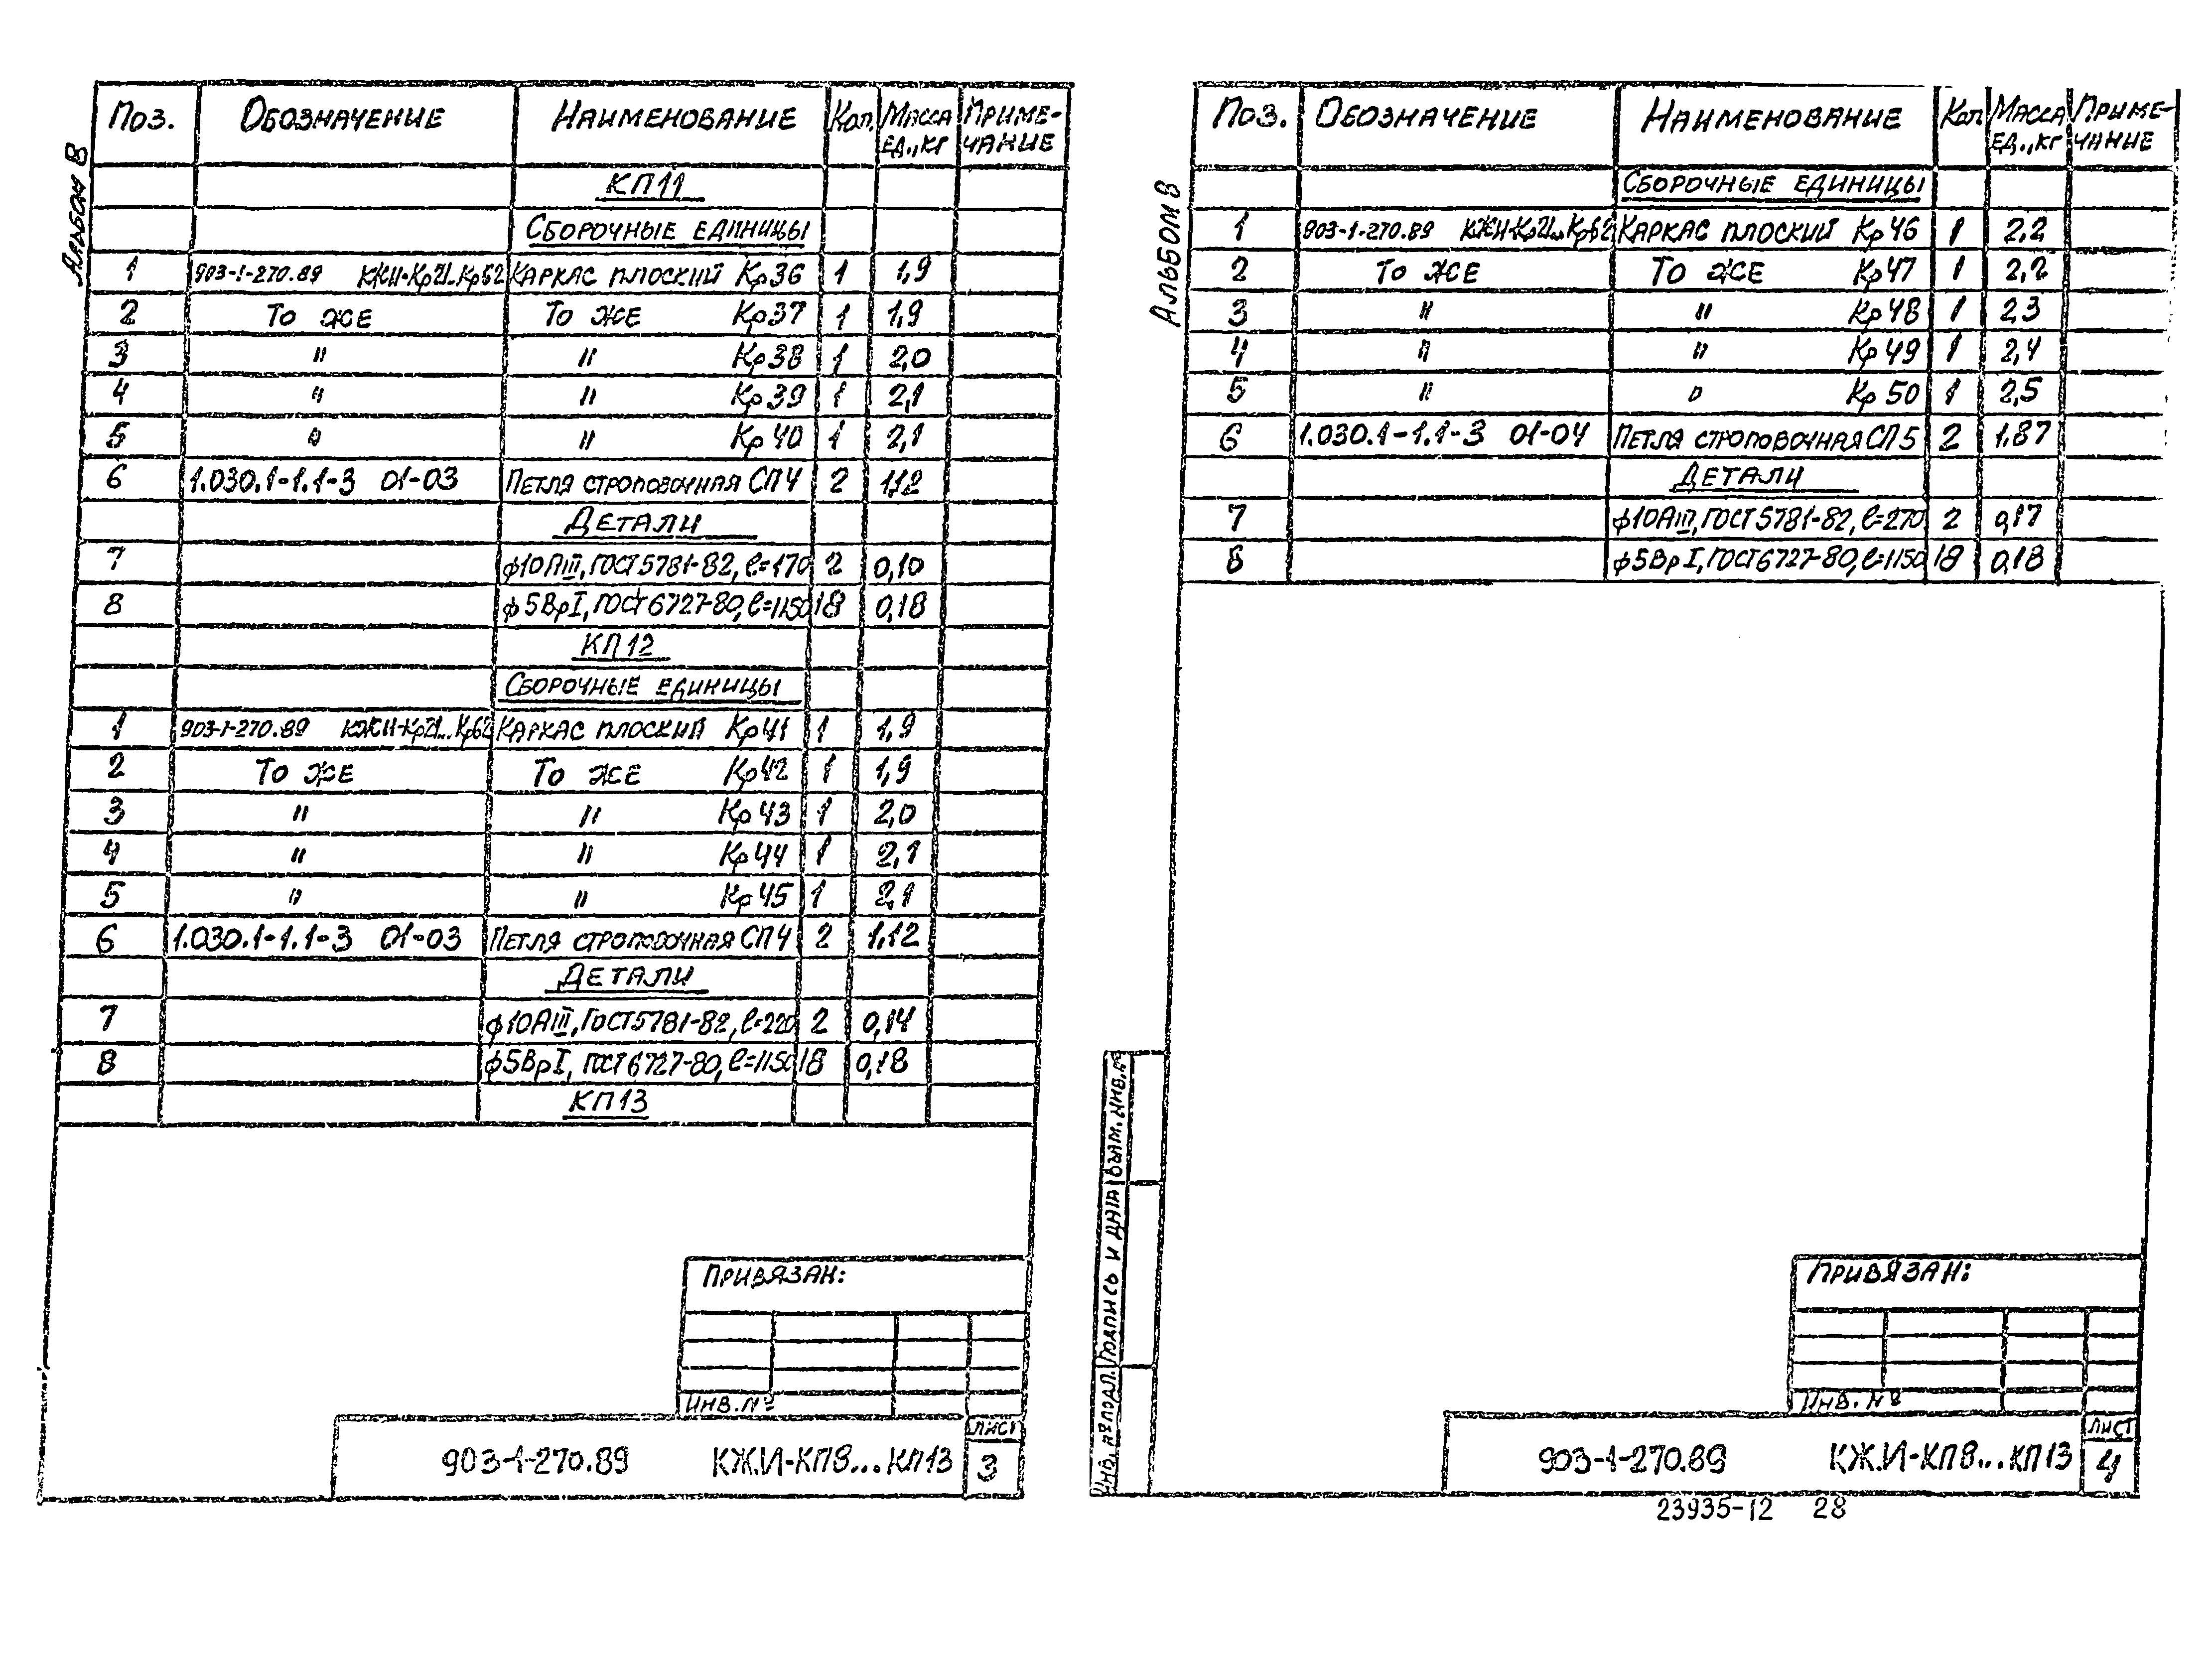 Альбом 8
Поз. Обозначение Наименование Кол. Масса ед., кг Примечание
КП11
Сборочные единицы
1 903-1-270.89 КЖИ-Кр21...Кр62 Каркас плоский Кр36 1 1,9
2 То же То же Кр37 1 1,9
3 " " Кр38 1 2,0
4 " " Кр39 1 2,1
5 " " Кр40 1 2,1
6 1.030.1-1.1-3 01-03 Петля строповочная СП4 2 1,12
Детали
7 ф10АIII, ГОСТ 5781-82, ℓ=170 2 0,10
8 ф5ВрI, ГОСТ 6727-80, ℓ=1150 18 0,18
КП12
Сборочные единицы
1 903-1-270.89 КЖИ-Кр21...Кр62 Каркас плоский Кр41 1 1,9
2 То же То же Кр42 1 1,9
3 " " Кр43 1 2,0
4 " " Кр44 1 2,1
5 " " Кр45 1 2,1
6 1.030.1-1.1-3 01-03 Петля строповочная СП4 2 1,12
Детали
7 ф10АIII, ГОСТ 5781-82, ℓ=220 2 0,14
8 ф5ВрI, ГОСТ 6727-80, ℓ=1150 18 0,18
КП13
Привязан:
Инв. №
903-1-270.89 КЖ.И-КП8...КП13 Лист 3
Альбом 8
Поз. Обозначение Наименование Кол Масса ед., кг Примечание
Сборочные единицы
1 903-1-270.89 КЖИ-Кр21...Кр62 Каркас плоский Кр46 1 2,2
2 То же То же Кр47 1 2,2
3 " " Кр48 1 2,3
4 " " Кр49 1 2,4
5 " " Кр50 1 2,5
6 1.030.1-1.1-3 01-04 Петля строповочная СП5 2 1,87
Детали
7 ф10АIII, ГОСТ 5781-82, ℓ=270 2 0,17
8 ф5ВрI, ГОСТ 6727-80, ℓ=1150 18 0,18
Инв. № подл. Подпись и дата Взам. инв. №
Привязан:
Инв. №
903-1-270.89 КЖ.И-КП8...КП13 Лист 4
23935-12 28